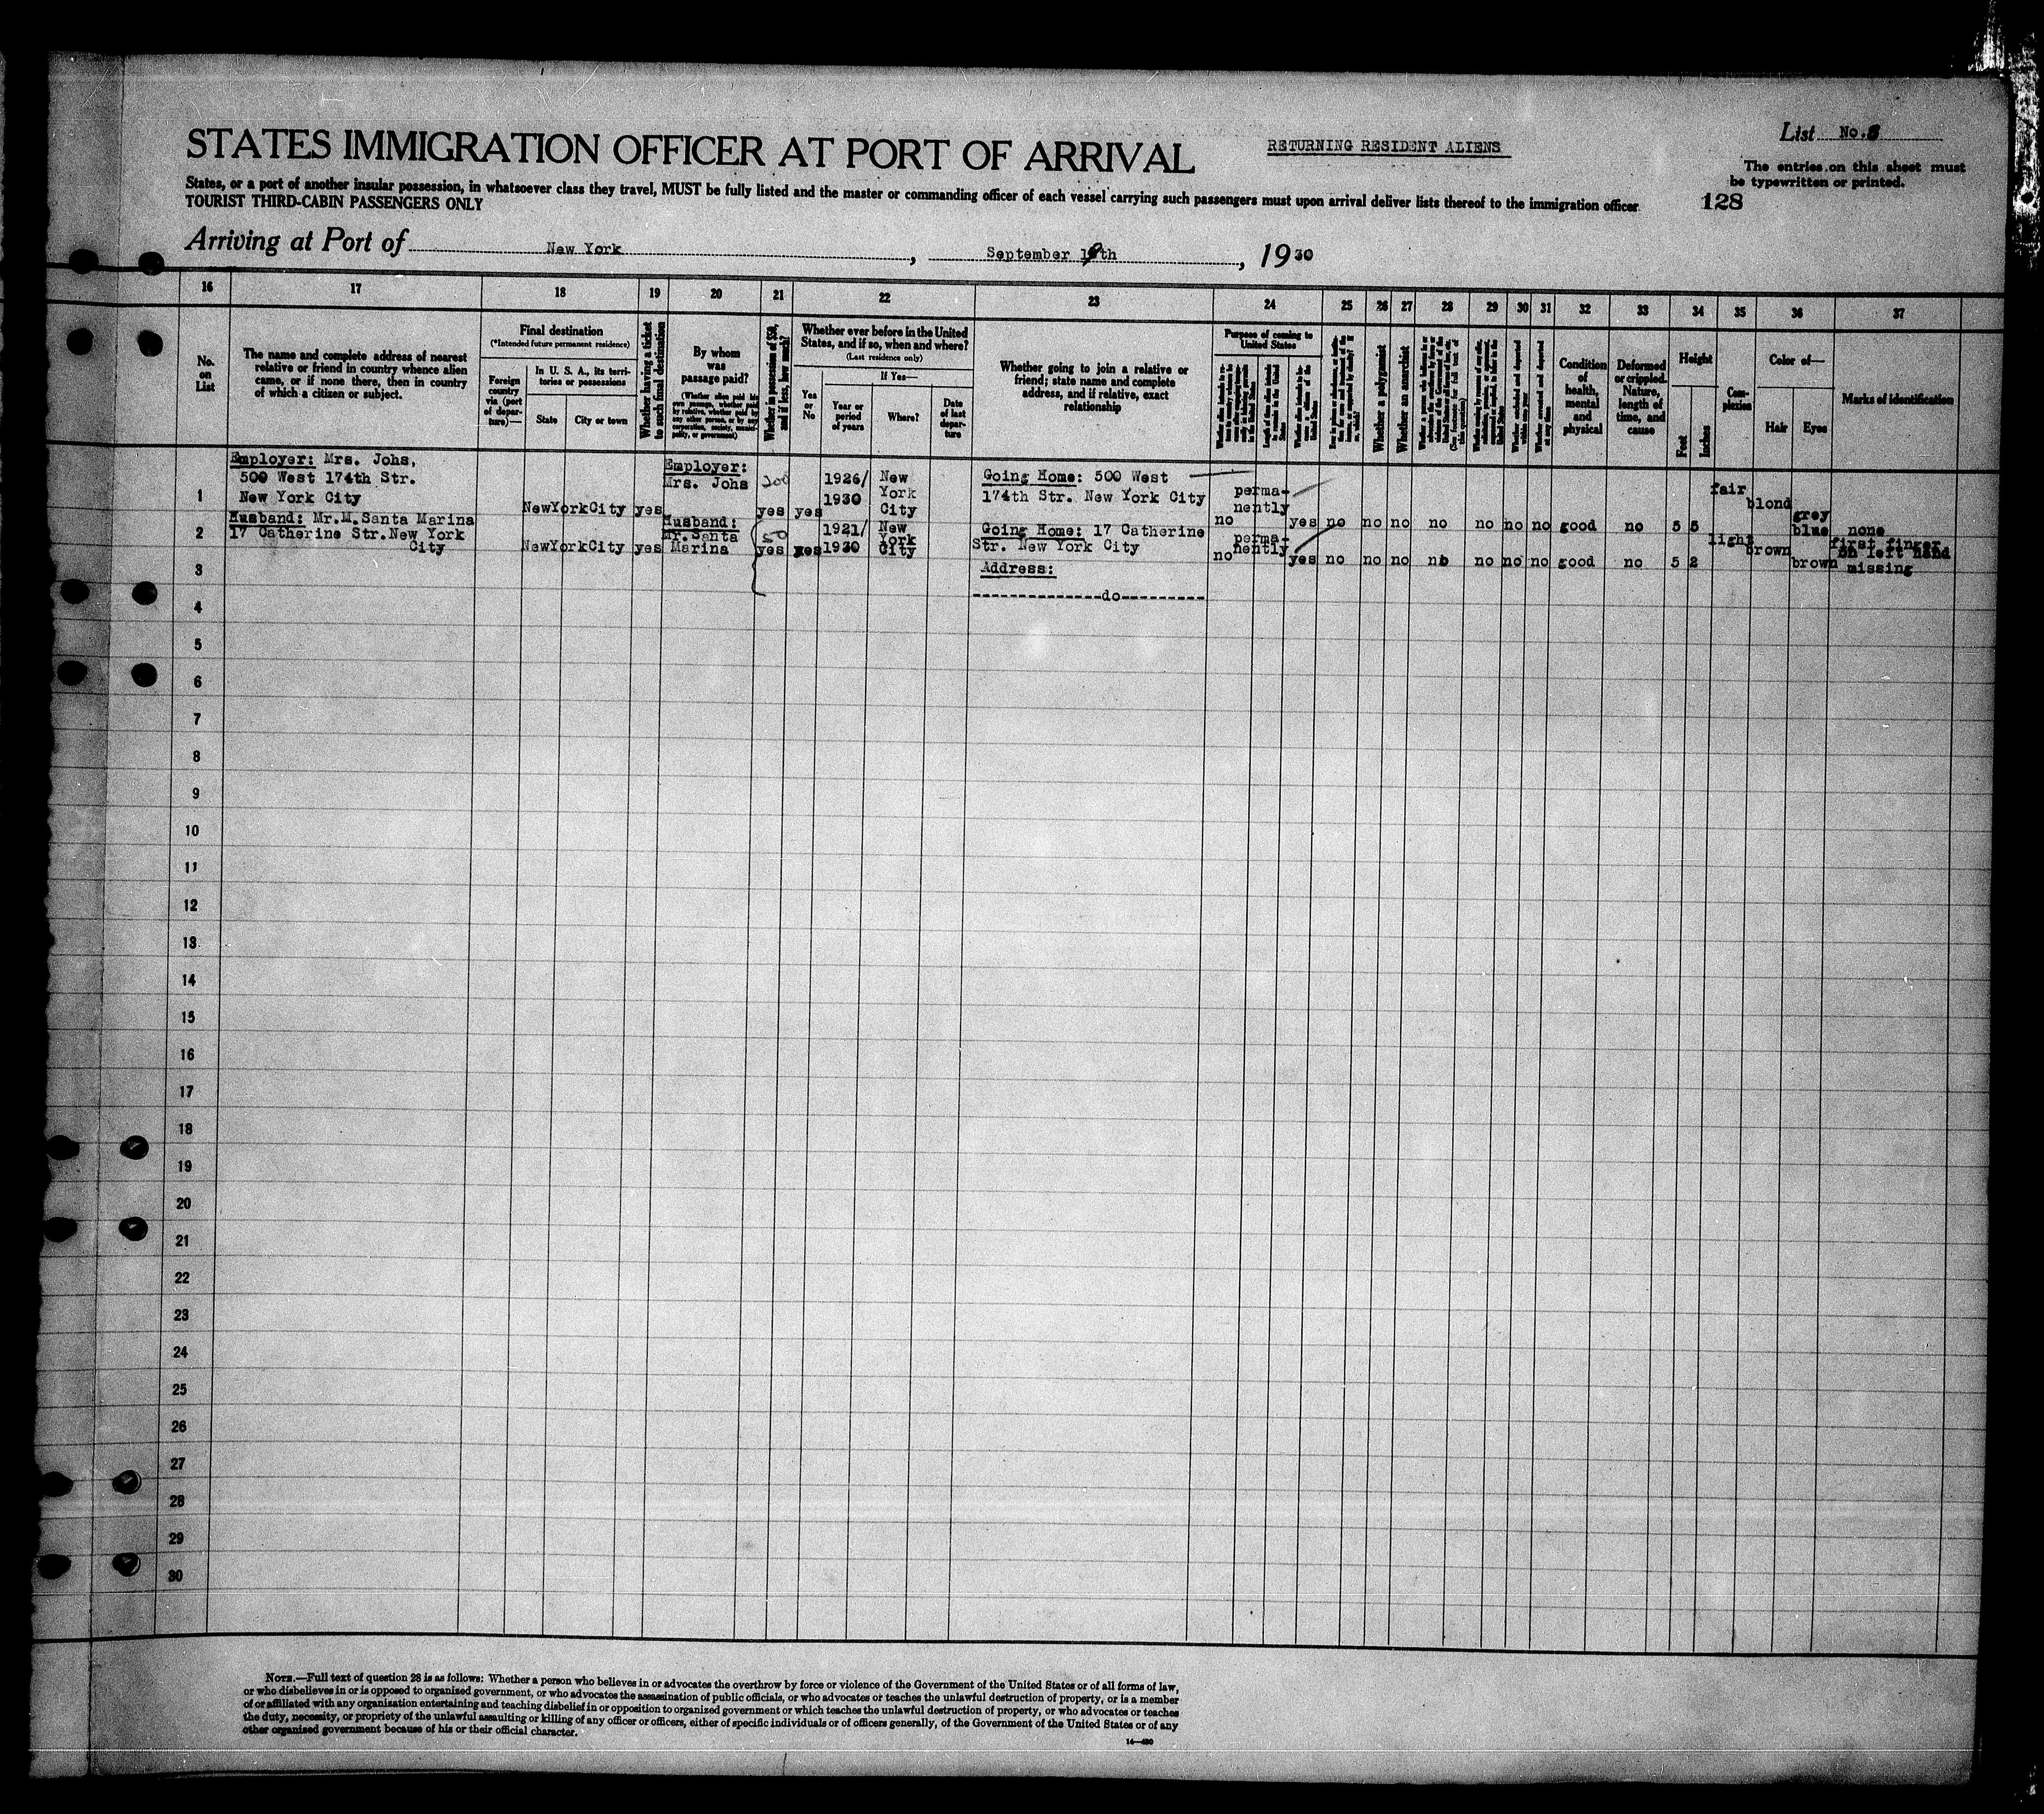 STATES IMMIGRATION OFFICER AT PORT OF ARRIVAL
RETURNING RESIDENT ALIENS
List No.
The entries on this sheet must
be typewritten or printed.
States, or a port of another insular possession, in whatsoever class they travel, MUST be fully listed and the master or commanding officer of each vessel carrying such passengers must upon arrival deliver lists thereof to the immigration officer
TOURIST THIRD-CABIN PASSENGERS ONLY
128
Arriving at Port of New York, September 19th, 1930
16 17 18 19 20 21 22 23 24 25 26 27 28 29 30 31 32 33 34 35 36 37
No. on List
The name and complete address of nearest
relative or friend in country whence alien
came, or if none there, then in country
of which a citizen or subject.
Final destination
(*Intended future permanent residence)
Foreign country via (port of departure)—
In U. S. A., its territories or possessions
State
City or town
Whether having a ticket to such final destination
By whom was passage paid?
(Whether alien paid his own passage, whether paid by relative, whether paid by any other person, or by any corporation, society, municipality, or government)
Whether in possession of $50, and if less, how much?
Whether ever before in the United
States, and if so, when and where?
(Last residence only)
Yes or No
If Yes—
Year or period of years
Where?
Date of last departure
Whether going to join a relative or
friend; state name and complete
address, and if relative, exact
relationship
Purpose of coming to United States
Whether a polygamist
Whether an anarchist
Condition of health, mental and physical
Deformed or crippled. Nature, length of time, and cause
Height
Feet
Inches
Complexion
Color of—
Hair
Eyes
Marks of identification
1
Employer: Mrs. Johs,
500 West 174th Str.
New York City
NewYorkCity yes
Employer:
Mrs. Johs
yes yes
1926/
1930
New
York
City
Going Home: 500 West
174th Str. New York City
no
perma-
nently
yes no no no no no no no good no 5 5 fair blond
grey
blue
none
2
Husband: Mr.M.Santa Marina
17 Catherine Str.New York
City
NewYorkCity yes
Husband:
Mr.Santa
Marina
50
yes yes
1921/
1930
New
York
City
Going Home: 17 Catherine
Str. New York City
no
perma-
nently
yes no no no no no no no good no 5 2 light brown brown
first finger
on left hand
missing
3
Address:
--------------do---------
4
5
6
7
8
9
10
11
12
13
14
15
16
17
18
19
20
21
22
23
24
25
26
27
28
29
30
NOTE.—Full text of question 28 is as follows: Whether a person who believes in or advocates the overthrow by force or violence of the Government of the United States or of all forms of law,
or who disbelieves in or is opposed to organized government, or who advocates the assassination of public officials, or who advocates or teaches the unlawful destruction of property, or is a member
of or affiliated with any organization entertaining and teaching disbelief in or opposition to organized government or which teaches the unlawful destruction of property, or who advocates or teaches
the duty, necessity, or propriety of the unlawful assaulting or killing of any officer or officers, either of specific individuals or of officers generally, of the Government of the United States or of any
other organized government because of his or their official character.